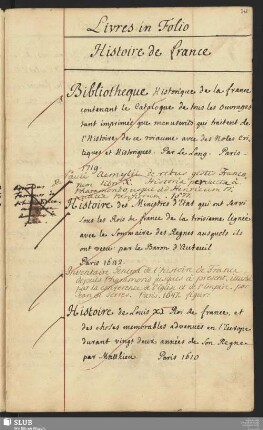 Livres in Folio
Histoire de france
Bibliotheque Historique de la france
contenant le Catalogue de tous les Ouvrages
tant imprimés que manuscrits qui traitent de
l'Histoire de ce roiaume avec des Notes Cri,
tiques et Historiques. Par Le Long. Paris
1719
Histoire des Ministres d'Etat qui ont servi
sous les Rois de france de la troisieme lignée
avec le Sommaire des Regnes ausquels ils
ont vecu par le Baron d'Auteuil
Paris 1642
Inventaire General de l'Histoire de France
depuis Pharamond jusques à present, illustré
par la conference de l'Eglise et de l'Empire, par
Jean de Serres. Paris. 1647. figur.
Histoire de Louis XI Roi de france, et
des choses memorables advenües en l'Europe
durant vingt deux années de son Regne
par Matthieu Paris 1610
SLUB
Wir führen Wissen.